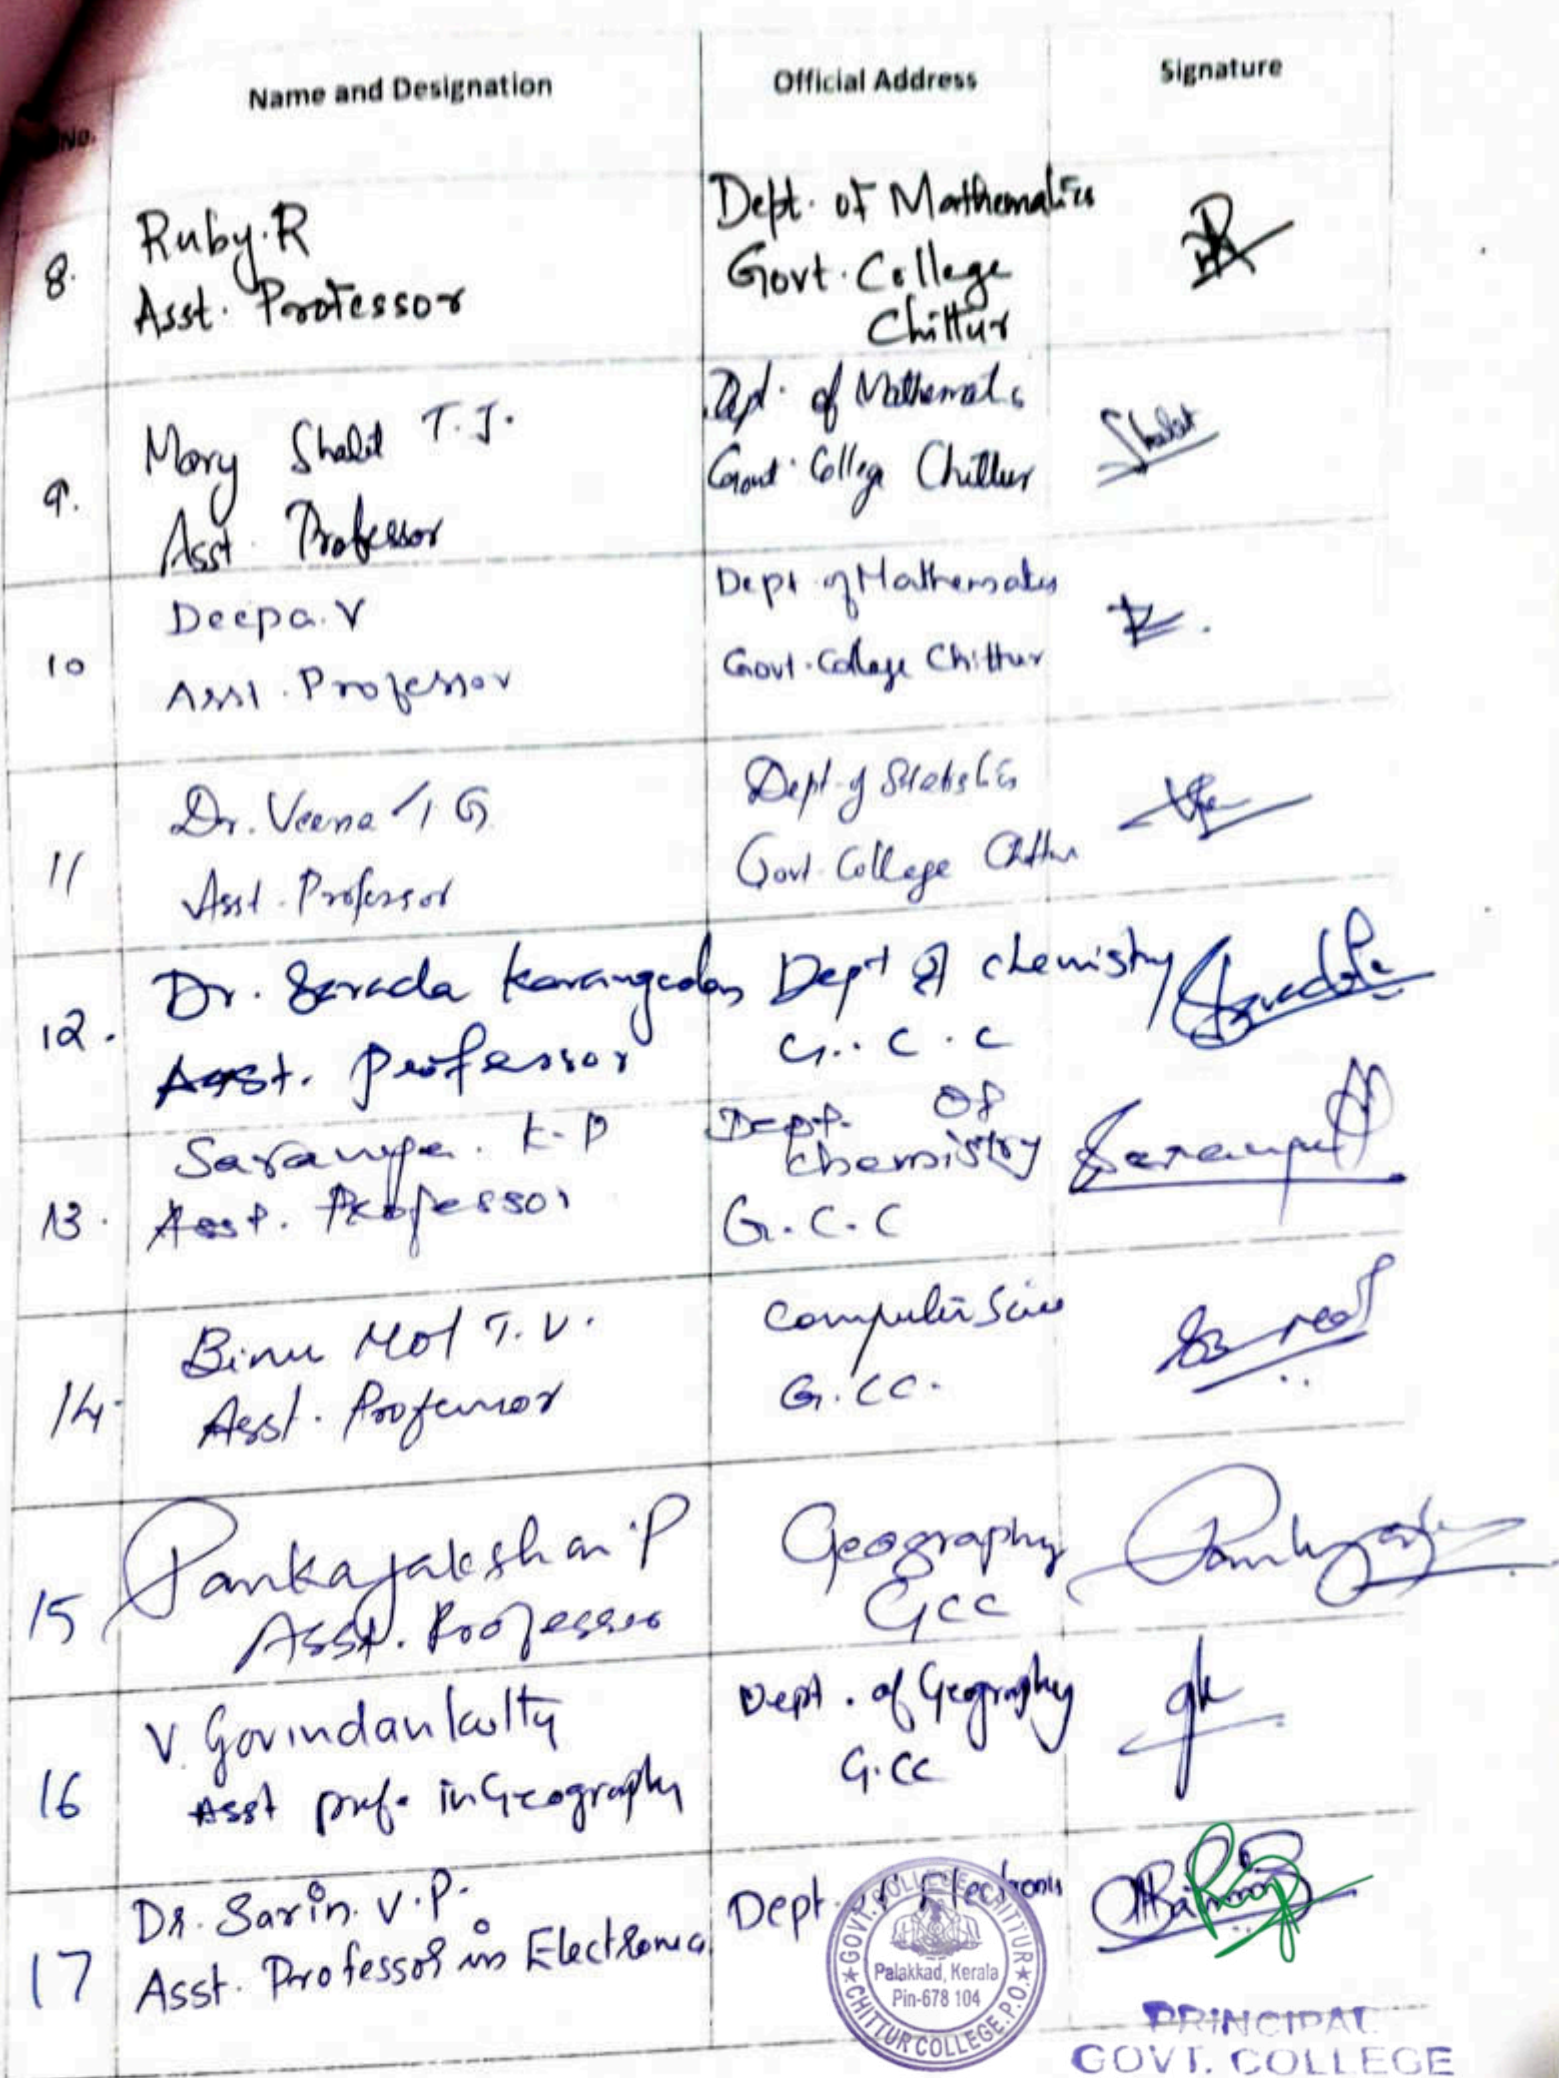 No.
Name and Designation
Official Address
Signature
8.
Ruby.R
Asst. Professor
Dept. of Mathematics
Govt. College
Chittur
9.
Mary Shalit T.J.
Asst. Professor
Dept. of
Govt. College Chittur
Shalit
10
Deepa. V
Asst. Professor
Dept of Mathematics
Govt. College Chittur
11
Dr. Veena G
Asst. Professor
Dept of Statistics
Govt. College Chittur
12.
Dr. Sarada
Asst. Professor
Dept of chemistry
G.C.C
13.
Saranya. K.P
Asst. Professor
Dept. of
chemistry
G.C.C
14.
Binu Mol T.V.
Asst. Professor
Computer
G.CC.
15
Pankajakshan.P
Asst. Professor
Geography
GCC
16
V. Govindankutty
Asst prof. in Geography
Dept. of Geography
G.CC
17
Dr. Sarin. V.P.
Asst. Professor in Electronics
Dept. of Electronics
GOVT. COLLEGE CHITTUR
Palakkad, Kerala
Pin-678 104
CHITTUR COLLEGE.P.O.
PRINCIPAL
GOVT. COLLEGE